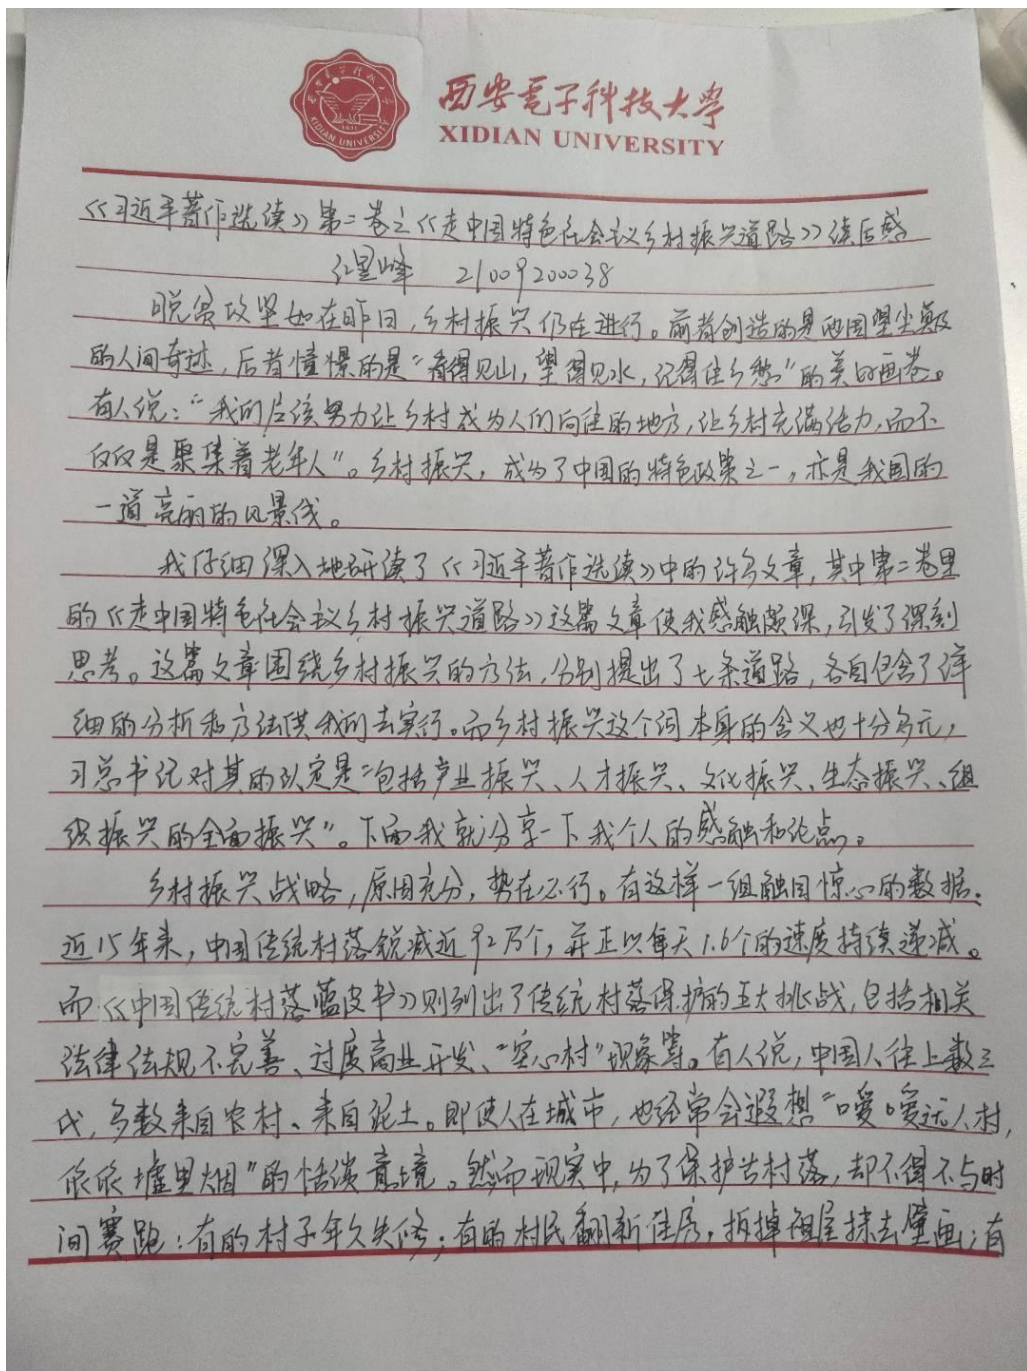 西安電子科技大學
XIDIAN UNIVERSITY
XIDIAN UNIVERSITY
1931
《习近平著作选读》第二卷之《走中国特色社会主义乡村振兴道路》读后感
峰 21009200038
脱贫攻坚如在昨日，乡村振兴仍在进行。前者创造的是
的人间奇迹，后者憧憬的是“看得见山，望得见水，记得住乡愁”的美好画卷。
有人说：“我们应该努力让乡村成为人们向往的地方，让乡村充满活力，而不
仅仅是聚集着老年人”。乡村振兴，成为了中国的特色政策之一，亦是我国的
一道亮丽的风景线。
我仔细深入地研读了《习近平著作选读》中的许多文章，其中第二卷里
的《走中国特色社会主义乡村振兴道路》这篇文章使我感触颇深，引发了深刻
思考。这篇文章围绕乡村振兴的方法，分别提出了七条道路，各自包含了详
细的分析和方法供我们去实行。而乡村振兴这个词本身的含义也十分多元，
习总书记对其的认定是“包括产业振兴、人才振兴、文化振兴、生态振兴、组
织振兴的全面振兴”。下面我就分享一下我个人的感触和论点。
乡村振兴战略，原因充分，势在必行。有这样一组触目惊心的数据：
近15年来，中国传统村落锐减近92万个，并正以每天1.6个的速度持续递减。
而《中国传统村落蓝皮书》则列出了传统村落保护的五大挑战，包括相关
法律法规不完善、过度商业开发、“空心村”现象等。有人说，中国人往上数三
代，多数来自农村、来自泥土。即使人在城市，也经常会遐想“暧暧远人村，
依依墟里烟”的恬淡意境。然而现实中，为了保护古村落，却不得不与时
间赛跑：有的村子年久失修；有的村民翻新住房，拆掉祖屋抹去壁画；有